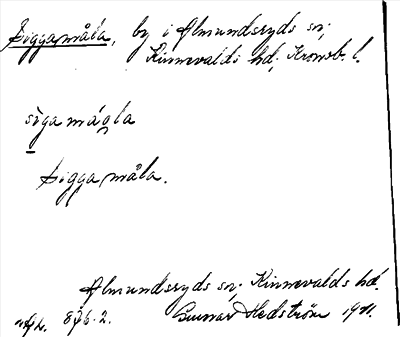 Siggamåla, by i Almundsryds sn;
Kinnevalds hd; Kronob. l.
siga måla
Siggamåla.
Almundsryds sn; Kinnevalds hd.
Gunnar Hedström 1911.